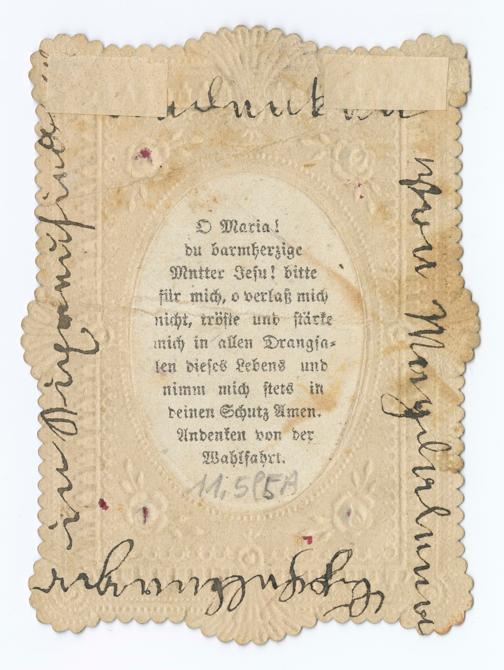 O Maria!
du barmherzige
Mntter Jesu! bitte
für mich, o verlaß mich
nicht, tröste und stärke
mich in allen Drangsa-
len dieses Lebens und
nimm mich stets in
deinen Schutz Amen.
Andenken von der
Wahlfahrt.
11.595A
Andenken von
von Magdalena
in